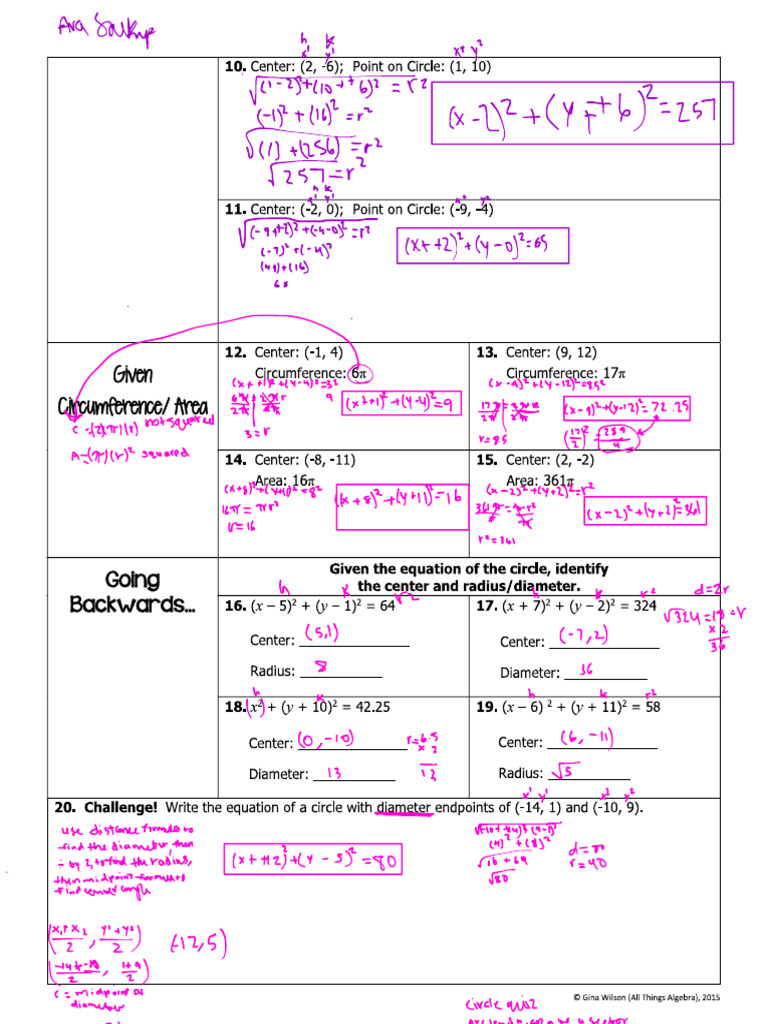 Ava
h k
x¹ y¹ x² y²
10. Center: (2, -6); Point on Circle: (1, 10)
√(1-2)²+(10+⁺6)² = r²
(-1)² + (16)² = r²
√(1) + (256) = r²
√257 = r²
(x-2)² + (y++6)² = 257
h k
x¹ y¹ x² y²
11. Center: (-2, 0); Point on Circle: (-9, -4)
√(-9++2)² + (-4-0)² = r²
(-7)² + (-4)²
(49) + (16)
(x++2)² + (y-0)² = 65
Given
Circumference/ Area
C = (2)(π)(r) not squared
A = (π)(r)² squared
12. Center: (-1, 4)
Circumference: 6π
(x++1)² + (y-4)² = 3²
9
6π = 2πr
2π 2π
3 = r
(x++1)² + (y-4)² = 9
13. Center: (9, 12)
Circumference: 17π
(x-9)² + (y-12)² = 8.5²
r = 8.5
(x-9)² + (y-12)² = 72.25
(17/2)² = 289/4
14. Center: (-8, -11)
Area: 16π
(x+8)² + (y+11)² = 8²
16π = πr²
r = 16
(x+8)² + (y+11)² = 16
15. Center: (2, -2)
Area: 361π
(x-2)² + (y+2)² = r²
361π = π·r²
π π
r² = 361
(x-2)² + (y+2)² = 361
Going
Backwards...
Given the equation of the circle, identify
the center and radius/diameter.
h k r²
16. (x – 5)² + (y – 1)² = 64
Center: (5,1)
Radius: 8
h k r²
17. (x + 7)² + (y – 2)² = 324
d=2r
√324 = 18 = r
x 2
36
Center: (-7, 2)
Diameter: 36
h k
18. (x²) + (y + 10)² = 42.25
Center: (0, -10)
Diameter: 13
r = 6.5
x 2
12
h k r²
19. (x – 6) ² + (y + 11)² = 58
Center: (6, -11)
Radius: √5
x¹ y¹ x² y²
20. Challenge! Write the equation of a circle with diameter endpoints of (-14, 1) and (-10, 9).
use distance formula to
find the diameter, then
÷ by 2, to find the radius,
then midpoint formula to
find center
(x++12)² + (y-5)² = 80
√(-10++14)² + (9-1)²
(4)² + (8)²
√16 + 64
√80
d = 80
r = 40
(x₁+x₂/2, y¹+y²/2) (-12,5)
(-14+-10/2, 1+9/2)
c = midpoint of
diameter
© Gina Wilson (All Things Algebra), 2015
circle quiz